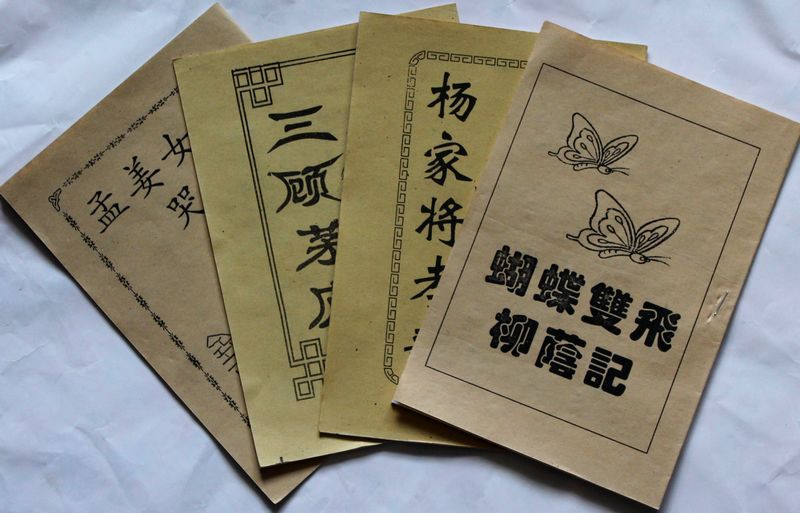 孟姜女
哭
三顾茅庐
杨家将
蝴蝶雙飛
柳蔭記